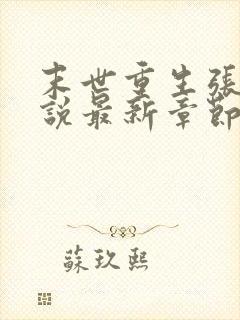 末世重生張
說最新章節
蘇玖熙